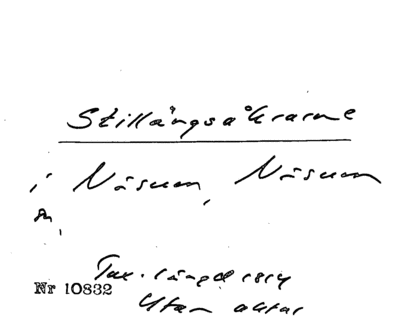 Stillängsåkrarne
i Näsum, Näsum
sn,
Tax. längd 1814
Nr 10832
Utan aktnr